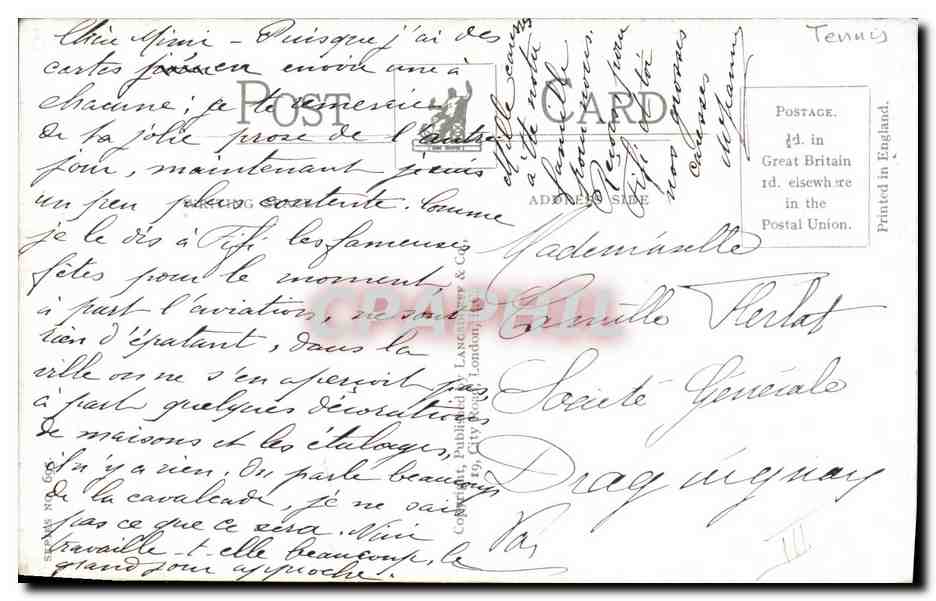 Chère Mimi – Puisque j'ai des
cartes j'en envoie une à
chacune ; je te remercie
de ta jolie prose de l'autre
jour, maintenant je suis
un peu plus contente. Comme
je le dis à Fifi les fameuses
fêtes pour le moment,
à part l'aviation, ne sont
rien d'épatant, dans la
ville on ne s'en aperçoit pas
à part quelques décorations
de maisons et les étalages,
il n'y a rien. On parle beaucoup
de la cavalcade, je ne sais
pas ce que ce sera. Nini
travaille-t-elle beaucoup, le
grand jour approche.
Mille
à toute notre
famille
pour nous.
Reçois pour
Fifi et toi
nos grosses
caresses
POST CARD
ADDRESS SIDE
Tennis
POSTAGE.
½d. in
Great Britain
1d. elsewhere
in the
Postal Union.
Printed in England.
Mademoiselle
Camille Herlat
Société Générale
Draguignan
Var
III
Copyright, Published by LANGSREY & Co.
19, City Road, London, E.C.
SERIES NO.
CPAPHIL